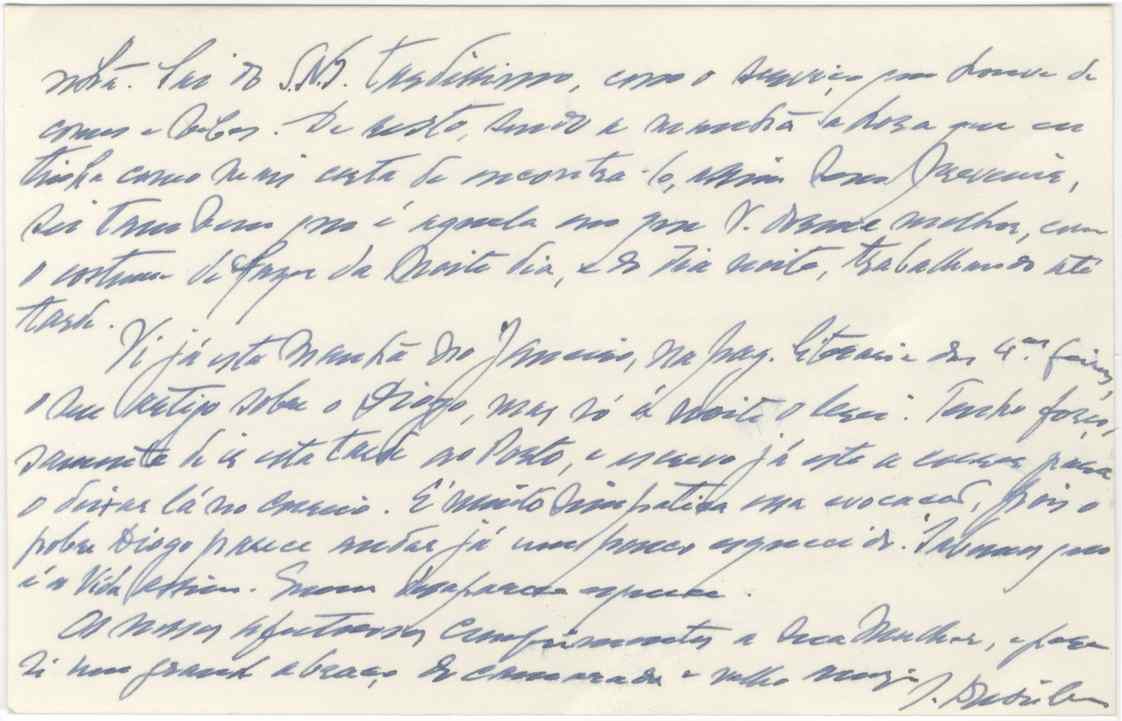 nhã. Saí do S.N.I. tardíssimo, com o serviço que houve de
comes e bebes. De resto, sendo a manhã a hora que eu
tinha como mais certa de encontrá-lo, assim sem prevenir,
sei também que é aquela em que V. dorme melhor, com
o costume de fazer da noite dia, e do dia noite, trabalhando até
tarde.
Vi já esta manhã no Janeiro, na pag. literaria das 4.as feiras,
o seu artigo sobre o Diogo, mas só à noite o lerei. Tenho força,
samente de ir esta tarde ao Porto, e escrevo já este a correr para
o deixar lá no correio. É muito simpatica essa evocação, pois o
pobre Diogo parece andar já um pouco esquecido. Sabemos que
é a Vida assim. Quem desaparece esquece.
Os nossos afectuosos cumprimentos a sua Mulher, e para
si um grande abraço do camarada e velho amigo